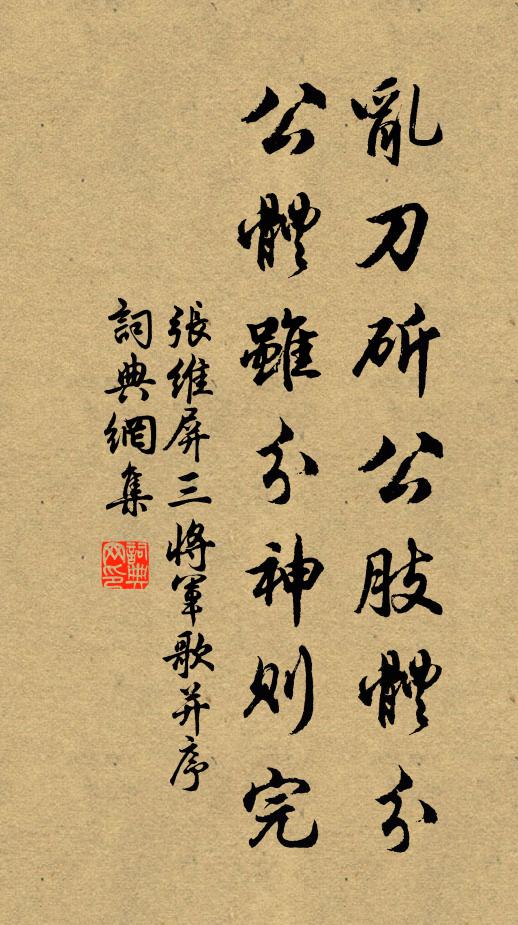 亂刀斫公肢體分
公體雖分神則完
張維屏三將軍歌并序
詞典網集
詞典
网印